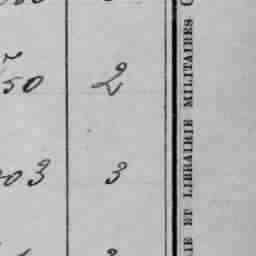 50 2
03 3
IE ET LIBRAIRIE MILITAIRES